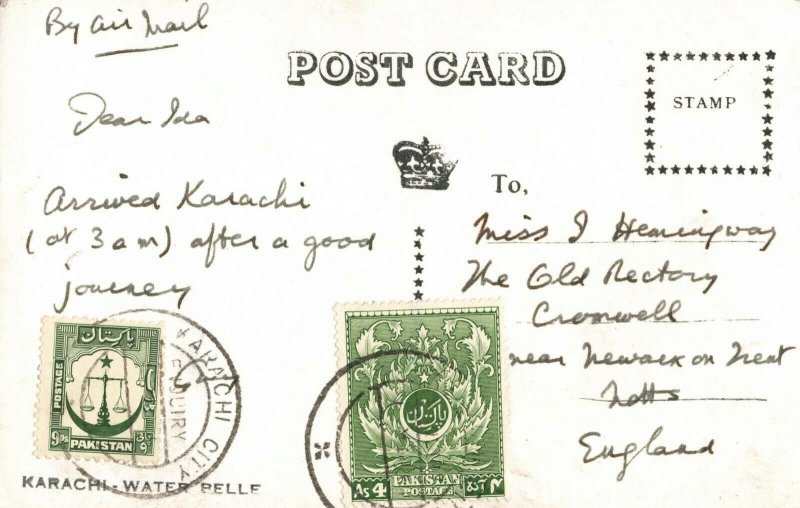 By Air Mail
POST CARD
STAMP
Dear Ida
Arrived Karachi
(at 3 am) after a good
journey
To,
Miss I Hemingway
The Old Rectory
Cromwell
near Newark on Trent
Notts
England
پاکستان
POSTAGE
9Ps
PAKISTAN
KARACHI CITY
ENQUIRY
پاکستان
As 4
PAKISTAN
POSTAGE
KARACHI - WATER BELLE